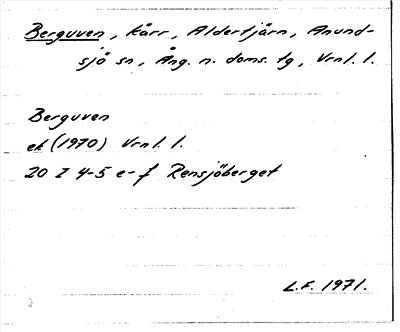 Berguven, kärr, Aldertjärn, Anund-
sjö sn, Ång. n. doms. tg, Vrnl. l.
Berguven
ek (1970) Vrnl. l.
20 I 4-5 e-f Rensjöberget
L.F. 1971.